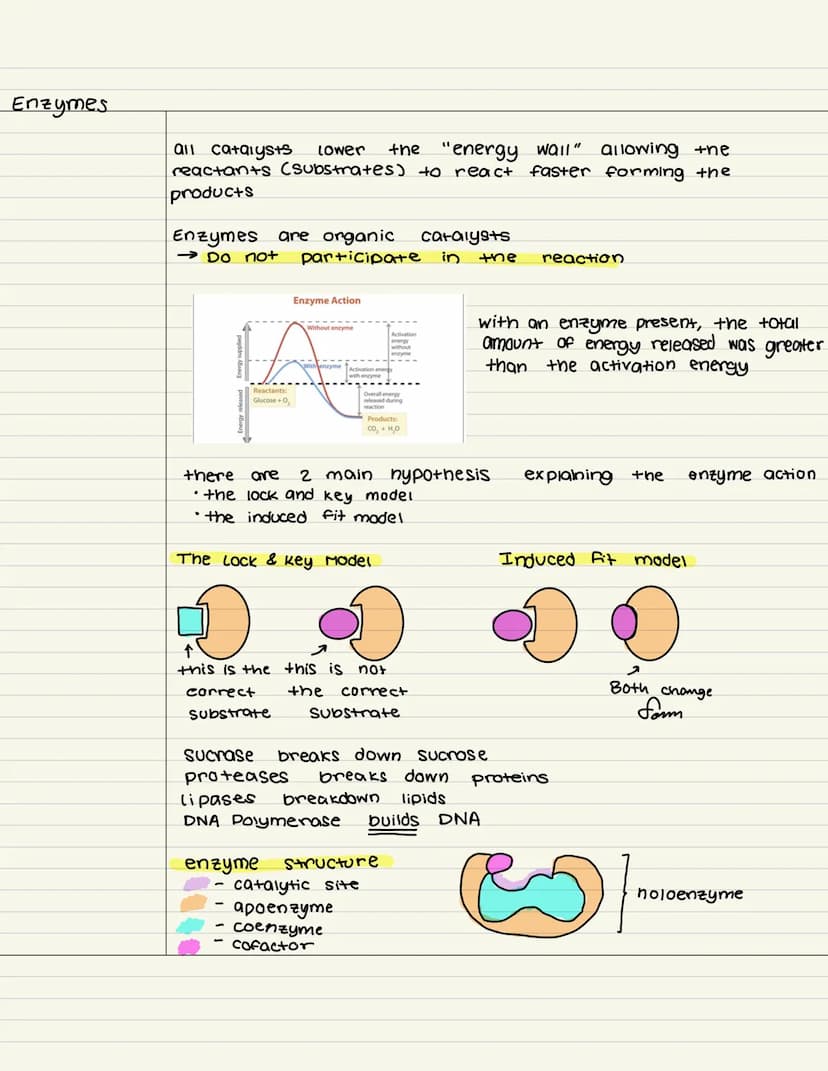 Enzymes
all catalysts lower the "energy wall" allowing the
reactants (substrates) to react faster forming the
products
Enzymes are organic catalysts
→ Do not participate in the reaction
Enzyme Action
Without enzyme
With enzyme
Energy supplied
Energy released
Activation
energy
without
enzyme
Activation energy
with enzyme
Reactants:
Glucose + O₂
Overall energy
released during
reaction
Products:
CO₂ + H₂O
with an enzyme present, the total
amount of energy released was greater
than the activation energy
there are 2 main hypothesis explaining the enzyme action
• the lock and key model
• the induced fit model
The Lock & Key Model
Induced Fit model
↑
this is the
correct
substrate
this is not
the correct
substrate
Both change
form
sucrase breaks down sucrose
proteases breaks down proteins
lipases breakdown lipids
DNA Polymerase builds DNA
enzyme structure
- catalytic site
- apoenzyme
- coenzyme
- cofactor
holoenzyme